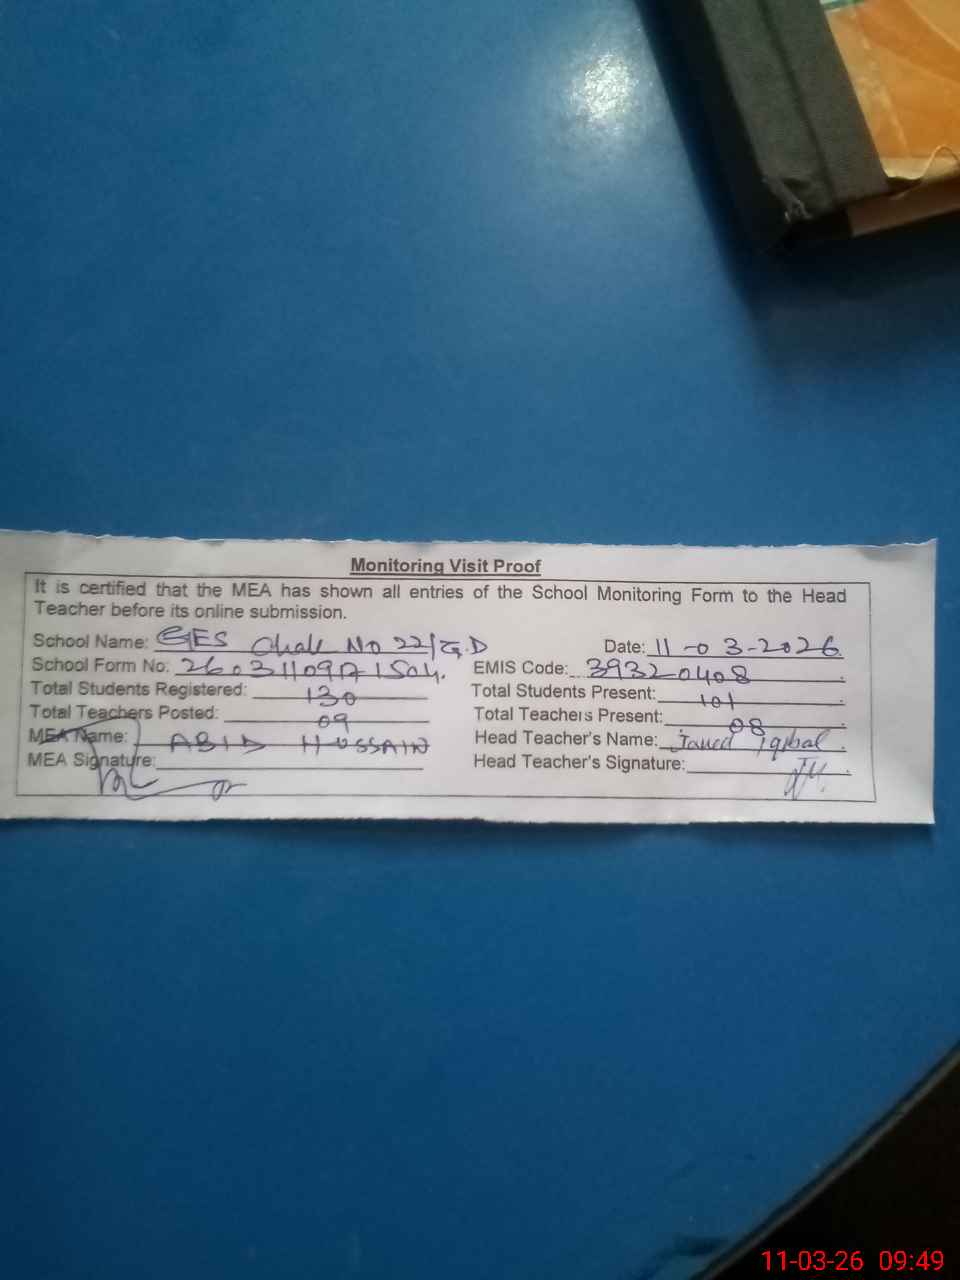 Monitoring Visit Proof
It is certified that the MEA has shown all entries of the School Monitoring Form to the Head
Teacher before its online submission.
School Name: GES Chak No 22/G.D Date: 11-03-2026
School Form No: EMIS Code: 39320408
Total Students Registered: 130 Total Students Present: 101
Total Teachers Posted: 09 Total Teachers Present: 08
MEA Name: ABID HUSSAIN Head Teacher's Name: Javed iqbal
MEA Signature: Head Teacher's Signature:
11-03-26 09:49